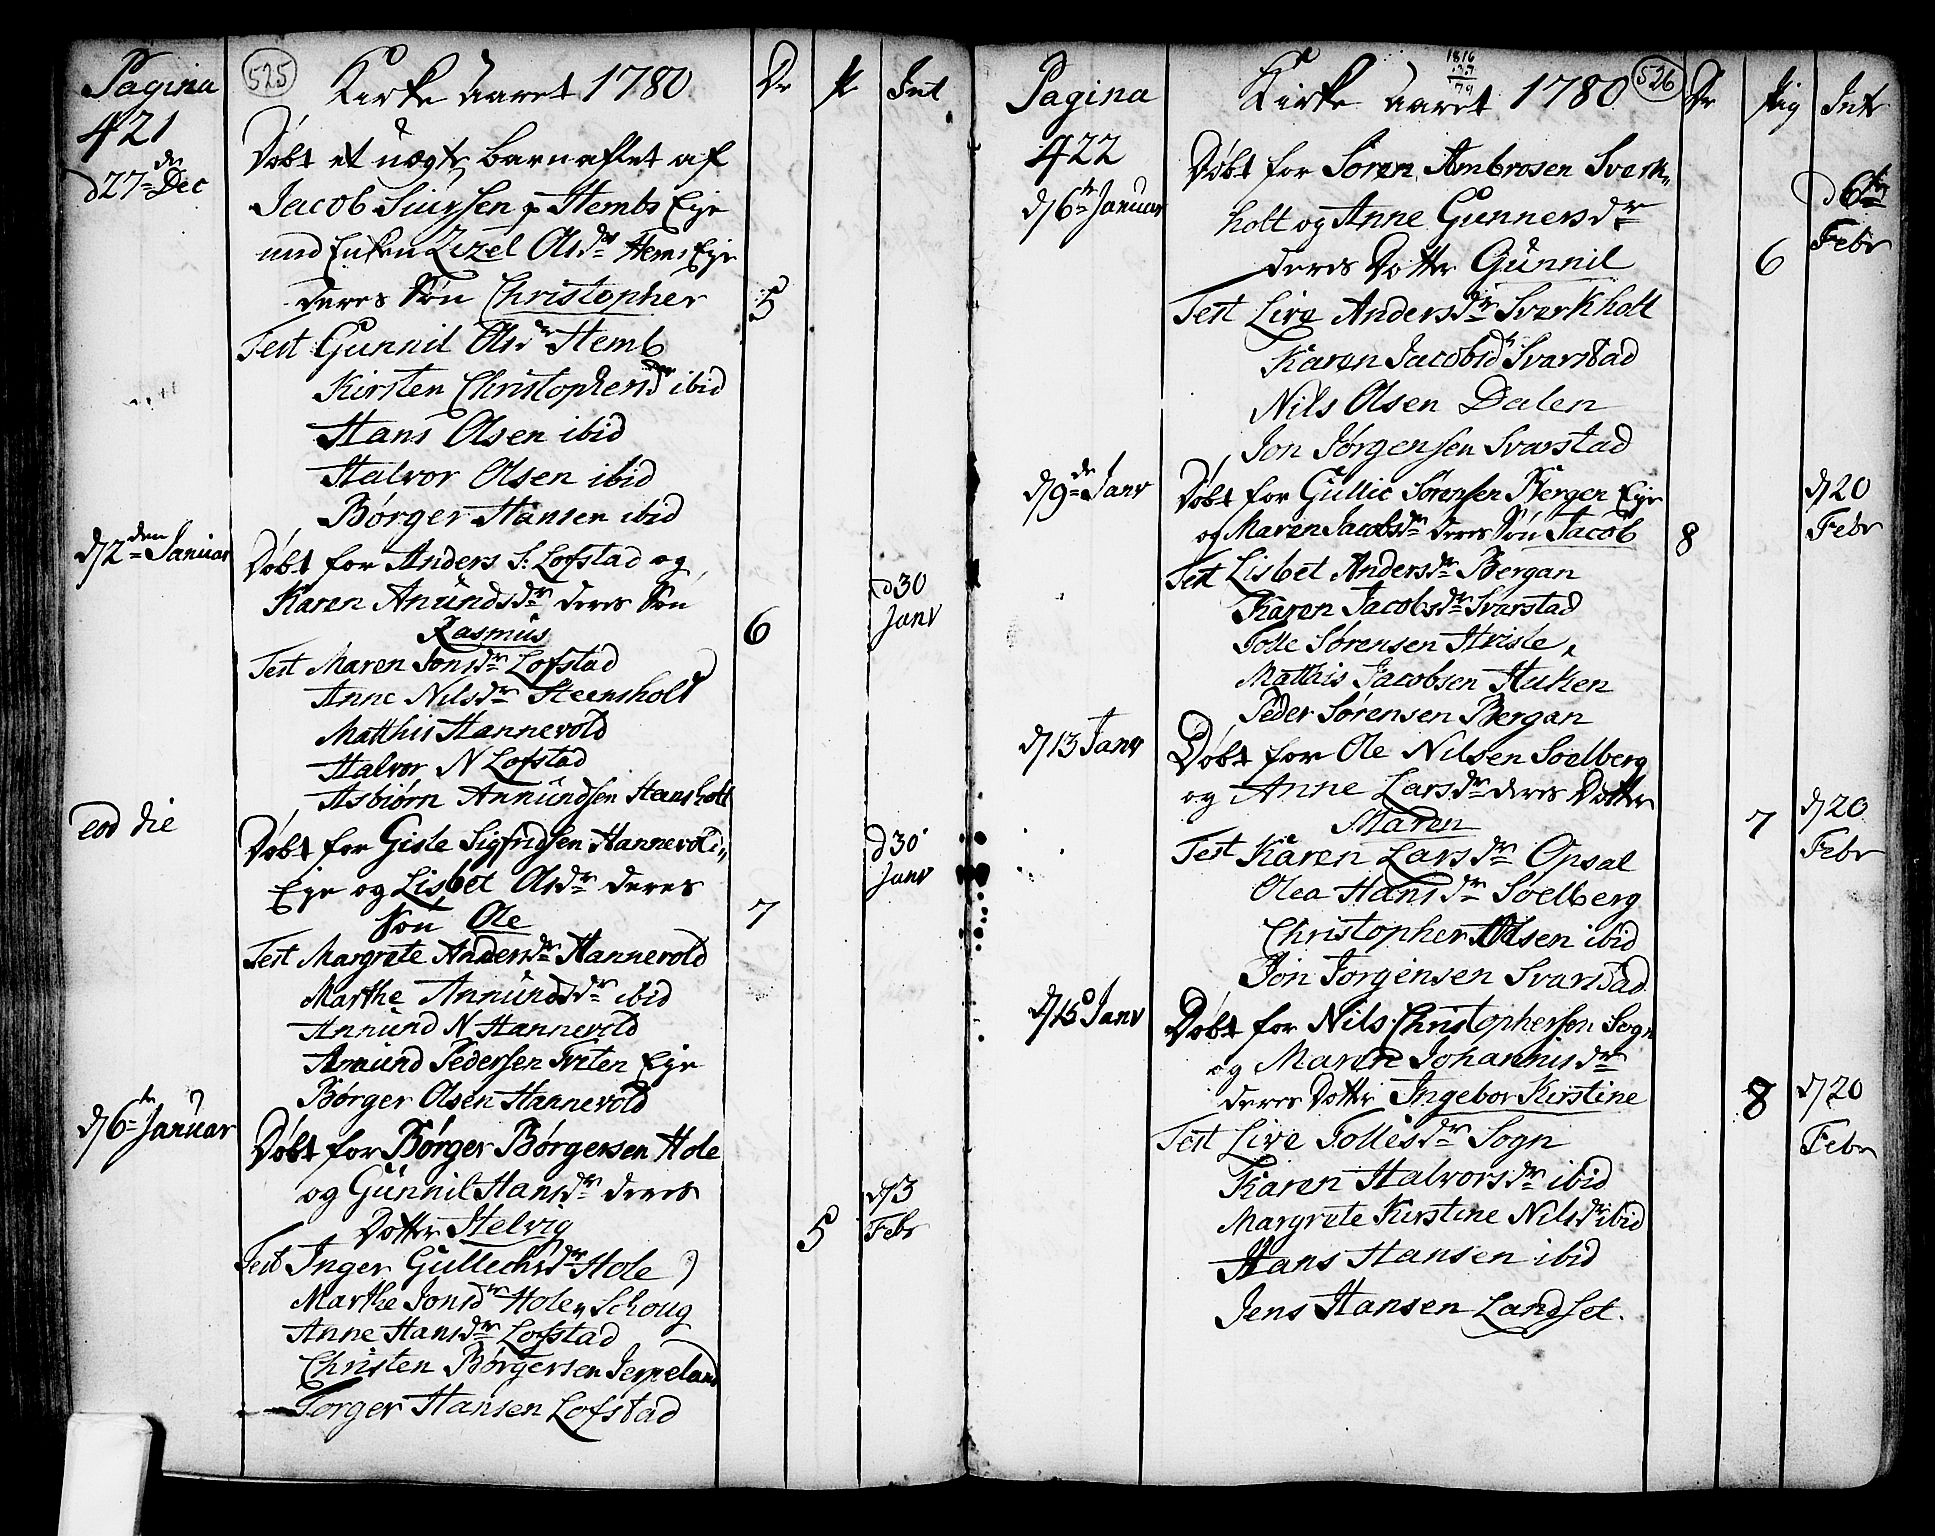 Pagina 421
525
Kirke Aaret 1780
Dr
P
Int
d 27de Dec
Døbt et uægte barn aflet af
Jacob Siursen p Hembs Eje
med Enken Zizel Olsdr Hems Eje
deres Søn Christopher
5
Test Gunnil Olsdr Hemb
Kirsten Christophersdr ibid
Hans Olsen ibid
Halvor Olsen ibid
Børger Hansen ibid
d 2den Januar
Døbt for Anders S. Lofstad og
Karen Anundsdr deres Søn
Rasmus
6
d 30 Janv
Test Maren Jonsdr Lofstad
Anne Nilsdr Steensholt
Matthis Hannevold
Halvor N Lofstad
Asbiørn Annundsen Stensholt
eod die
Døbt for Gisle Sigfridsen Hannevold
Eje og Lisbet Olsdr deres
Søn Ole
7
d 30 Janv
Test Margrete Andersdr Hannevold
Marthe Annundsdr ibid
Annund N Hannevold
Amund Pedersen Tveten Eje
Børger Olsen Hannevold
d 6te Januar
Døbt for Børger Børgersen Hole
og Gunnil Hansdr deres
Dotter Helvig
5
d 3 Febr
Test Inger Gullechsdr Hole
Marthe Jonsdr Hole Schoug
Anne Hansdr Lofstad
Christen Børgersen Jerpeland
Torger Hansen Lofstad
Pagina 422
1816
37
79
Kirke Aaret 1780
526
Dr
Pig
Intr
d 6te Januar
Døbt for Søren Ambrosen Svark-
holt og Anne Gunnersdr
deres Dotter Gunnil
6
d 6te Febr
Test Live Andersdr Svarkholt
Karen Jacobsdr Svarstad
Nils Olsen Dalen
Jon Jørgensen Svarstad
d 9de Janv
Døbt for Gullic Sørensen Bergen Eje
og Maren Jacobsdr deres Søn Jacob
8
d 20 Febr
Test Lisbet Andersdr Bergan
Karen Jacobsdr Svarstad
Tolle Sørensen Hvisle
Matthis Jacobsen Huken
Peder Sørensen Bergan
d 13 Janv
Døbt for Ole Nilsen Soelberg
og Anne Larsdr deres Dotter
Maren
7
d 20 Febr
Test Karen Larsdr Opsal
Olea Hansdr Soelberg
Christopher Olsen ibid
Jon Jørgensen Svarstad
d 15 Janv
Døbt for Nils Christophersen Sogn
og Maren Johannisdr
deres Dotter Ingebor Kirstine
8
d 20 Febr
Test Live Tollesdr Sogn
Karen Halvorsdr ibid
Margrete Kirstine Nilsdr ibid
Hans Hansen ibid
Jens Hansen Landset.